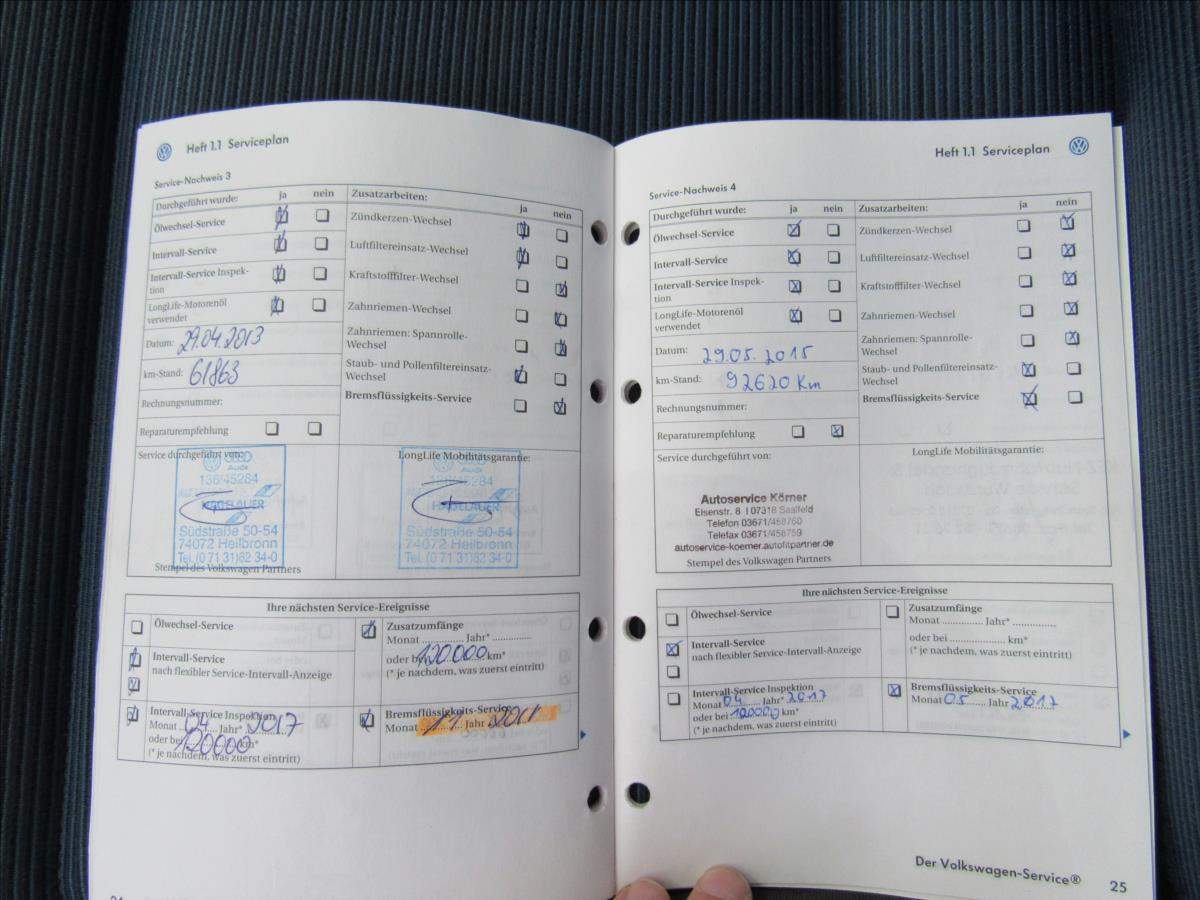 Heft 1.1 Serviceplan
Service-Nachweis 3
Durchgeführt wurde: ja nein
Ölwechsel-Service
Intervall-Service
Intervall-Service Inspek-
tion
LongLife-Motorenöl
verwendet
Datum: 29.04.2013
km-Stand: 61863
Rechnungsnummer:
Reparaturempfehlung
Zusatzarbeiten:
ja nein
Zündkerzen-Wechsel
Luftfiltereinsatz-Wechsel
Kraftstofffilter-Wechsel
Zahnriemen-Wechsel
Zahnriemen: Spannrolle-
Wechsel
Staub- und Pollenfiltereinsatz-
Wechsel
Bremsflüssigkeits-Service
Service durchgeführt von:
Audi
136/45284
HAGELAUER
Südstraße 50-54
74072 Heilbronn
Tel. (0 71 31) 62 34-0
Stempel des Volkswagen Partners
LongLife Mobilitätsgarantie:
Audi
136/45284
HAGELAUER
Südstraße 50-54
74072 Heilbronn
Tel. (0 71 31) 62 34-0
Ihre nächsten Service-Ereignisse
Ölwechsel-Service
Intervall-Service
nach flexibler Service-Intervall-Anzeige
Intervall-Service Inspektion
Monat 04 Jahr* 2017
oder bei 120000 km*
(* je nachdem, was zuerst eintritt)
Zusatzumfänge
Monat .............. Jahr* ..............
oder bei 120000 km*
(* je nachdem, was zuerst eintritt)
Bremsflüssigkeits-Service
Monat 11 Jahr
Heft 1.1 Serviceplan
Service-Nachweis 4
Durchgeführt wurde: ja nein
Ölwechsel-Service
Intervall-Service
Intervall-Service Inspek-
tion
LongLife-Motorenöl
verwendet
Datum: 29.05.2015
km-Stand: 92620 Km
Rechnungsnummer:
Reparaturempfehlung
Zusatzarbeiten: ja nein
Zündkerzen-Wechsel
Luftfiltereinsatz-Wechsel
Kraftstofffilter-Wechsel
Zahnriemen-Wechsel
Zahnriemen: Spannrolle-
Wechsel
Staub- und Pollenfiltereinsatz-
Wechsel
Bremsflüssigkeits-Service
Service durchgeführt von:
Autoservice Körner
Eisenstr. 8 I 07318 Saalfeld
Telefon 03671/458760
Telefax 03671/458759
autoservice-koerner.autofitpartner.de
Stempel des Volkswagen Partners
LongLife Mobilitätsgarantie:
Ihre nächsten Service-Ereignisse
Ölwechsel-Service
Intervall-Service
nach flexibler Service-Intervall-Anzeige
Intervall-Service Inspektion
Monat 04 Jahr* 2017
oder bei 120000 km*
(* je nachdem, was zuerst eintritt)
Zusatzumfänge
Monat .............. Jahr* ..............
oder bei ..................... km*
(* je nachdem, was zuerst eintritt)
Bremsflüssigkeits-Service
Monat 05 Jahr 2017
Der Volkswagen-Service®
25